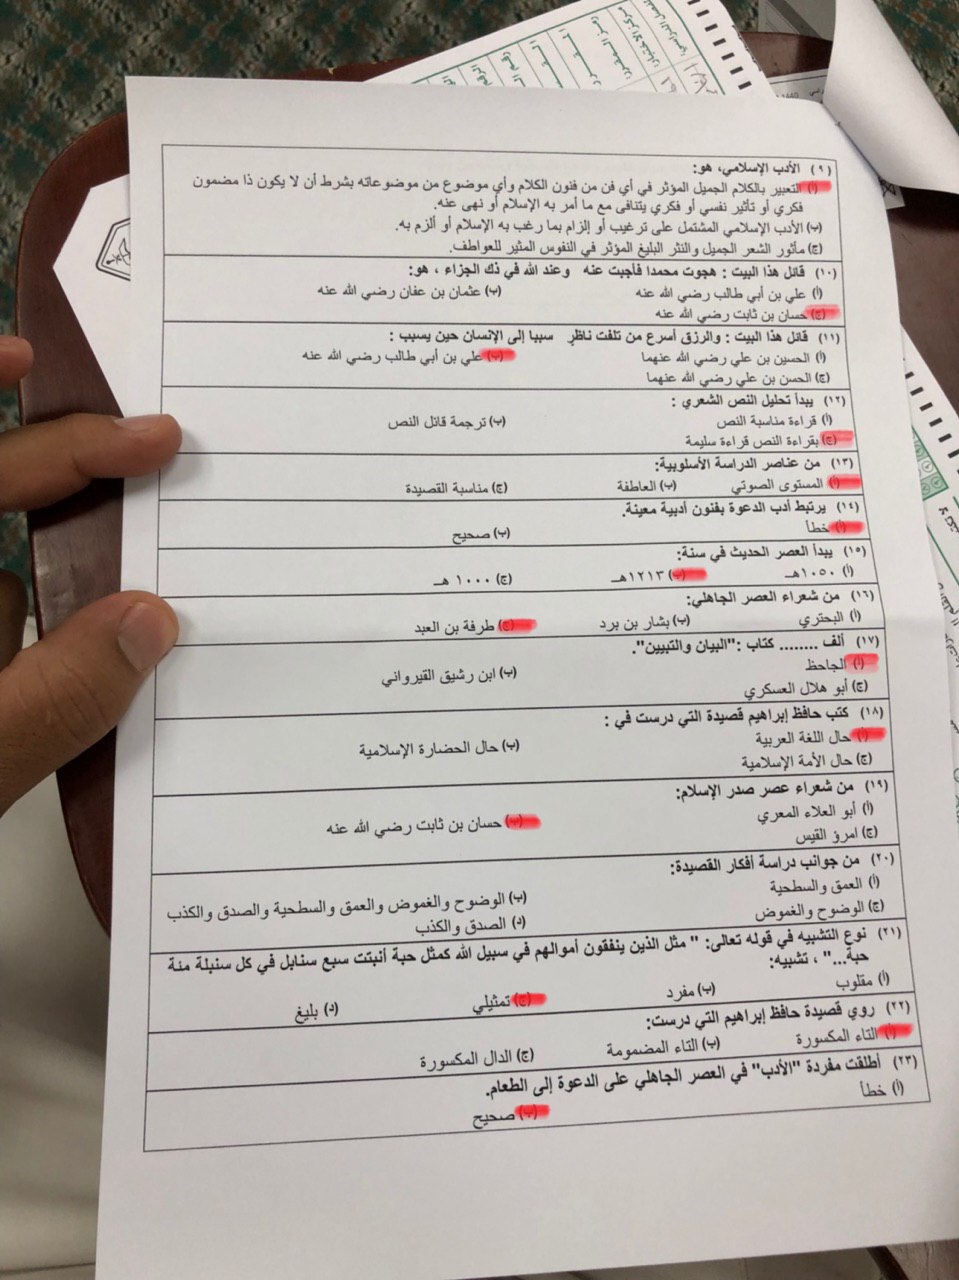 (٩) الأدب الإسلامي، هو:
(أ) التعبير بالكلام الجميل المؤثر في أي فن من فنون الكلام وأي موضوع من موضوعاته بشرط أن لا يكون ذا مضمون
فكري أو تأثير نفسي أو فكري يتنافى مع ما أمر به الإسلام أو نهى عنه.
(ب) الأدب الإسلامي المشتمل على ترغيب أو إلزام بما رغب به الإسلام أو ألزم به.
(ج) مأثور الشعر الجميل والنثر البليغ المؤثر في النفوس المثير للعواطف.
(١٠) قائل هذا البيت : هجوت محمدا فأجبت عنه وعند الله في ذك الجزاء ، هو:
(أ) علي بن أبي طالب رضي الله عنه (ب) عثمان بن عفان رضي الله عنه
(ج) حسان بن ثابت رضي الله عنه
(١١) قائل هذا البيت : والرزق أسرع من تلفت ناظر سببا إلى الإنسان حين يسبب :
(أ) الحسين بن علي رضي الله عنهما (ب) علي بن أبي طالب رضي الله عنه
(ج) الحسن بن علي رضي الله عنهما
(١٢) يبدأ تحليل النص الشعري :
(أ) قراءة مناسبة النص (ب) ترجمة قائل النص
(ج) بقراءة النص قراءة سليمة
(١٣) من عناصر الدراسة الأسلوبية:
(أ) المستوى الصوتي (ب) العاطفة (ج) مناسبة القصيدة
(١٤) يرتبط أدب الدعوة بفنون أدبية معينة.
(أ) خطأ (ب) صحيح
(١٥) يبدأ العصر الحديث في سنة:
(أ) ١٠٥٠هـ (ب) ١٢١٣هـ (ج) ١٠٠٠ هـ
(١٦) من شعراء العصر الجاهلي:
(أ) البحتري (ب) بشار بن برد (ج) طرفة بن العبد
(١٧) ألف ........ كتاب :"البيان والتبيين".
(أ) الجاحظ (ب) ابن رشيق القيرواني
(ج) أبو هلال العسكري
(١٨) كتب حافظ إبراهيم قصيدة التي درست في :
(أ) حال اللغة العربية (ب) حال الحضارة الإسلامية
(ج) حال الأمة الإسلامية
(١٩) من شعراء عصر صدر الإسلام:
(أ) أبو العلاء المعري (ب) حسان بن ثابت رضي الله عنه
(ج) امرؤ القيس
(٢٠) من جوانب دراسة أفكار القصيدة:
(أ) العمق والسطحية (ب) الوضوح والغموض والعمق والسطحية والصدق والكذب
(ج) الوضوح والغموض (د) الصدق والكذب
(٢١) نوع التشبيه في قوله تعالى: " مثل الذين ينفقون أموالهم في سبيل الله كمثل حبة أنبتت سبع سنابل في كل سنبلة مئة
حبة..." ، تشبيه:
(أ) مقلوب (ب) مفرد (ج) تمثيلي (د) بليغ
(٢٢) روي قصيدة حافظ إبراهيم التي درست:
(أ) التاء المكسورة (ب) التاء المضمومة (ج) الدال المكسورة
(٢٣) أطلقت مفردة "الأدب" في العصر الجاهلي على الدعوة إلى الطعام.
(أ) خطأ (ب) صحيح